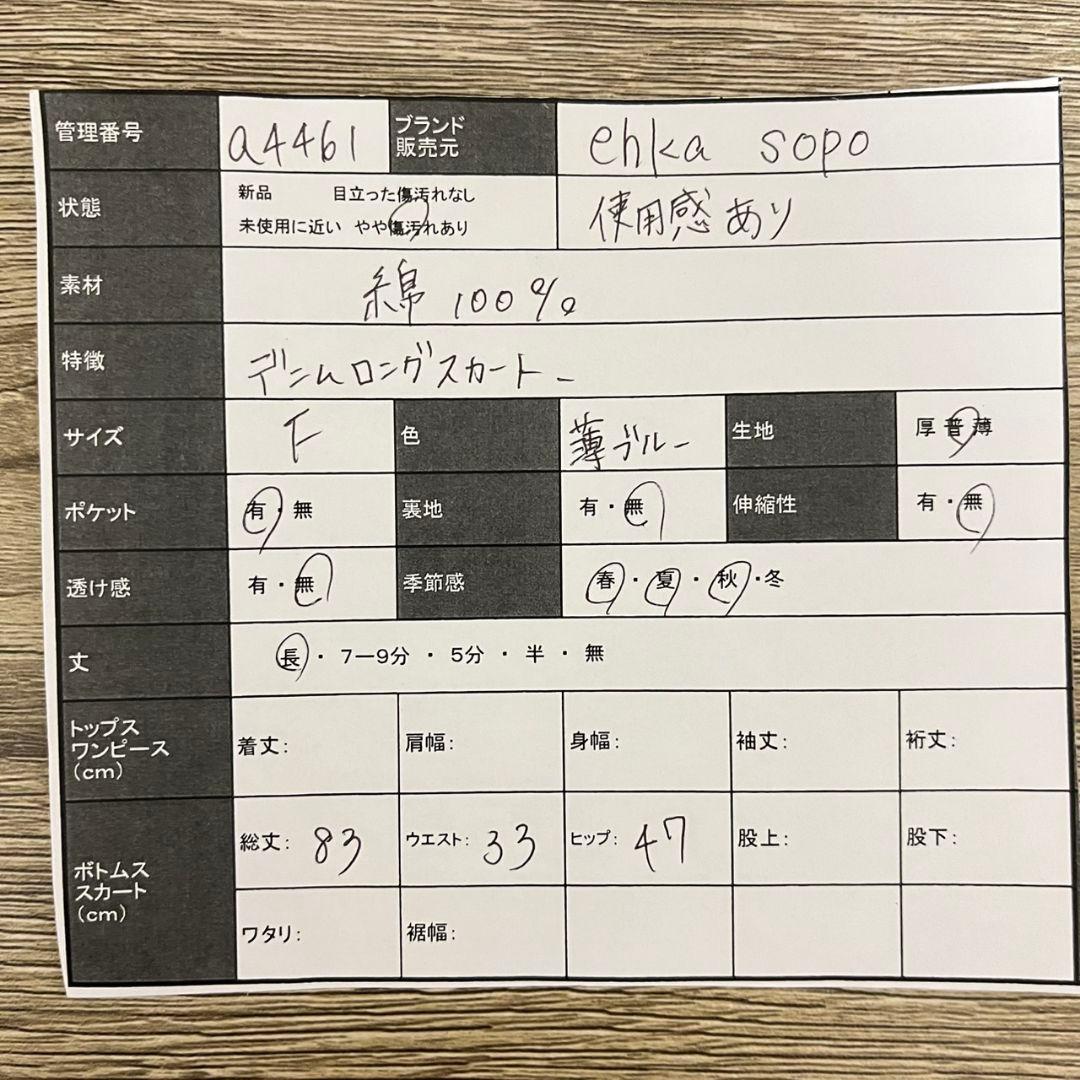 管理番号 a4461 ブランド 販売元 ehka sopo
状態 新品 目立った傷汚れなし
未使用に近い やや傷汚れあり 使用感あり
素材 綿 100%
特徴 デニムロングスカート
サイズ F 色 薄ブルー 生地 厚 普 薄
ポケット 有・無 裏地 有・無 伸縮性 有・無
透け感 有・無 季節感 春・夏・秋・冬
丈 長・7ー9分・5分・半・無
トップス
ワンピース
(cm) 着丈: 肩幅: 身幅: 袖丈: 裄丈:
ボトムス
スカート
(cm) 総丈: 83 ウエスト: 33 ヒップ: 47 股上: 股下:
ワタリ: 裾幅: